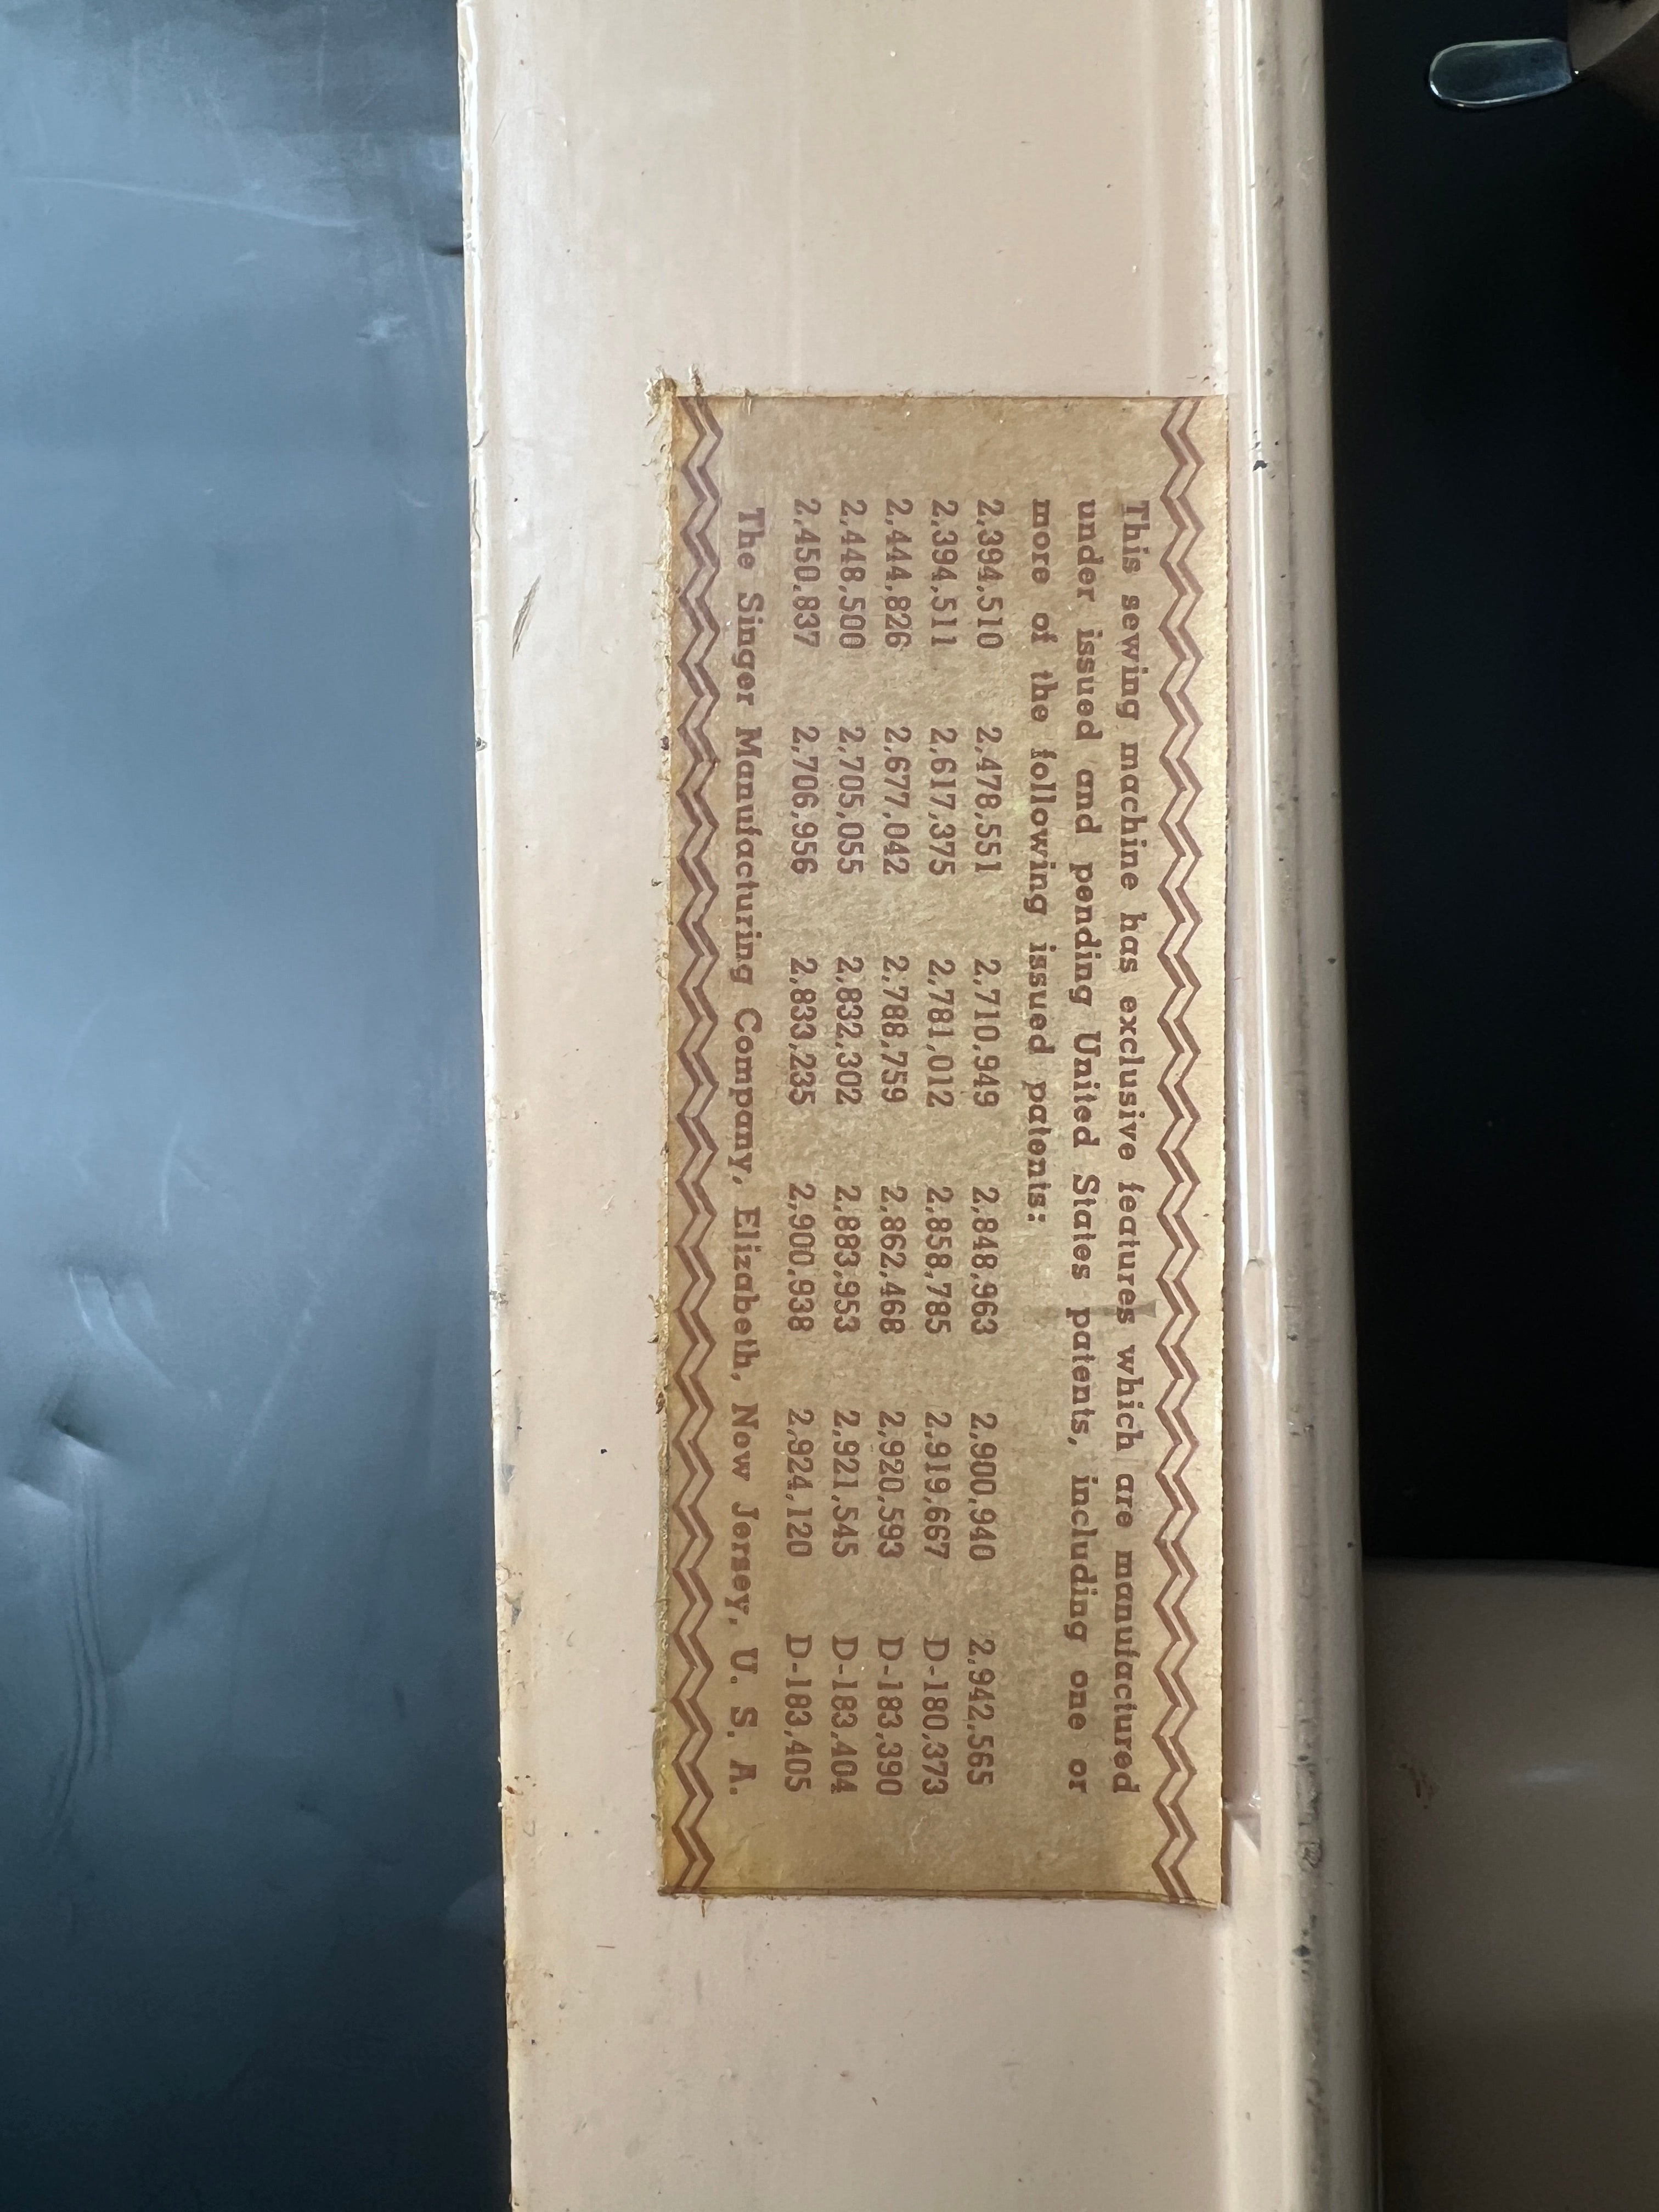 This sewing machine has exclusive features which are manufactured
under issued and pending United States patents, including one or
more of the following issued patents:
2,394,510 2,478,551 2,710,949 2,848,963 2,900,940 2,942,565
2,394,511 2,617,375 2,781,012 2,858,785 2,919,667 D-180,373
2,444,826 2,677,042 2,788,759 2,862,468 2,920,593 D-183,390
2,448,500 2,705,055 2,832,302 2,883,953 2,921,545 D-183,404
2,450,837 2,706,956 2,833,235 2,900,938 2,924,120 D-183,405
The Singer Manufacturing Company, Elizabeth, New Jersey, U. S. A.